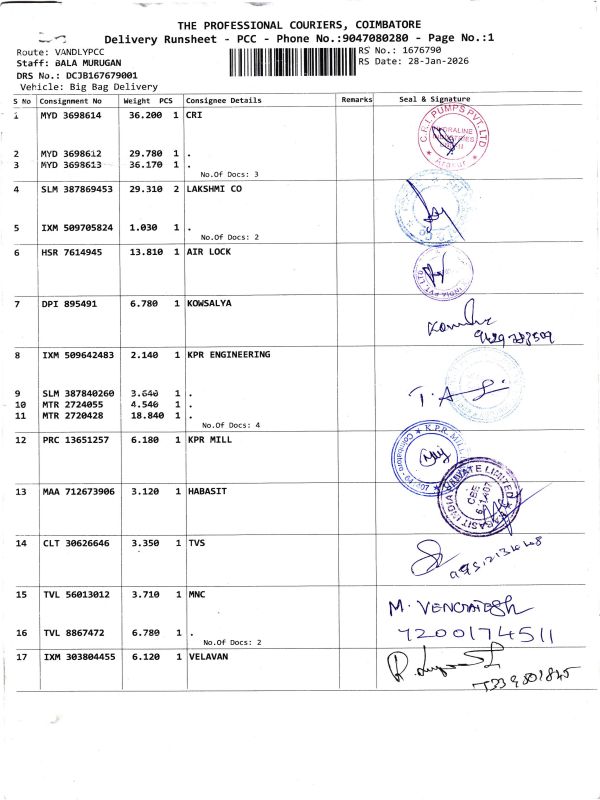 THE PROFESSIONAL COURIERS, COIMBATORE
Delivery Runsheet - PCC - Phone No.:9047080280 - Page No.:1
Route: VANDLYPCC
RS No.: 1676790
Staff: BALA MURUGAN
RS Date: 28-Jan-2026
DRS No.: DCJB167679001
Vehicle: Big Bag Delivery
S No Consignment No Weight PCS Consignee Details Remarks Seal & Signature
1 MYD 3698614 36.200 1 CRI
C.R.I. PUMPS PVT. LTD
2 MYD 3698612 29.780 1 .
3 MYD 3698613 36.170 1 .
No.Of Docs: 3
4 SLM 387869453 29.310 2 LAKSHMI CO
5 IXM 509705824 1.030 1 .
No.Of Docs: 2
6 HSR 7614945 13.810 1 AIR LOCK
INDIA PVT. LTD
7 DPI 895491 6.780 1 KOWSALYA
8 IXM 509642483 2.140 1 KPR ENGINEERING
9 SLM 387840260 3.640 1 .
10 MTR 2724055 4.540 1 .
11 MTR 2720428 18.840 1 .
No.Of Docs: 4
12 PRC 13651257 6.180 1 KPR MILL
K.P.R. MILL
Coimbatore
13 MAA 712673906 3.120 1 HABASIT
HABASIT INDIA PRIVATE LIMITED
CBE
14 CLT 30626646 3.350 1 TVS
15 TVL 56013012 3.710 1 MNC
M. VENCMATESH
16 TVL 8867472 6.780 1 .
7200174511
No.Of Docs: 2
17 IXM 303804455 6.120 1 VELAVAN